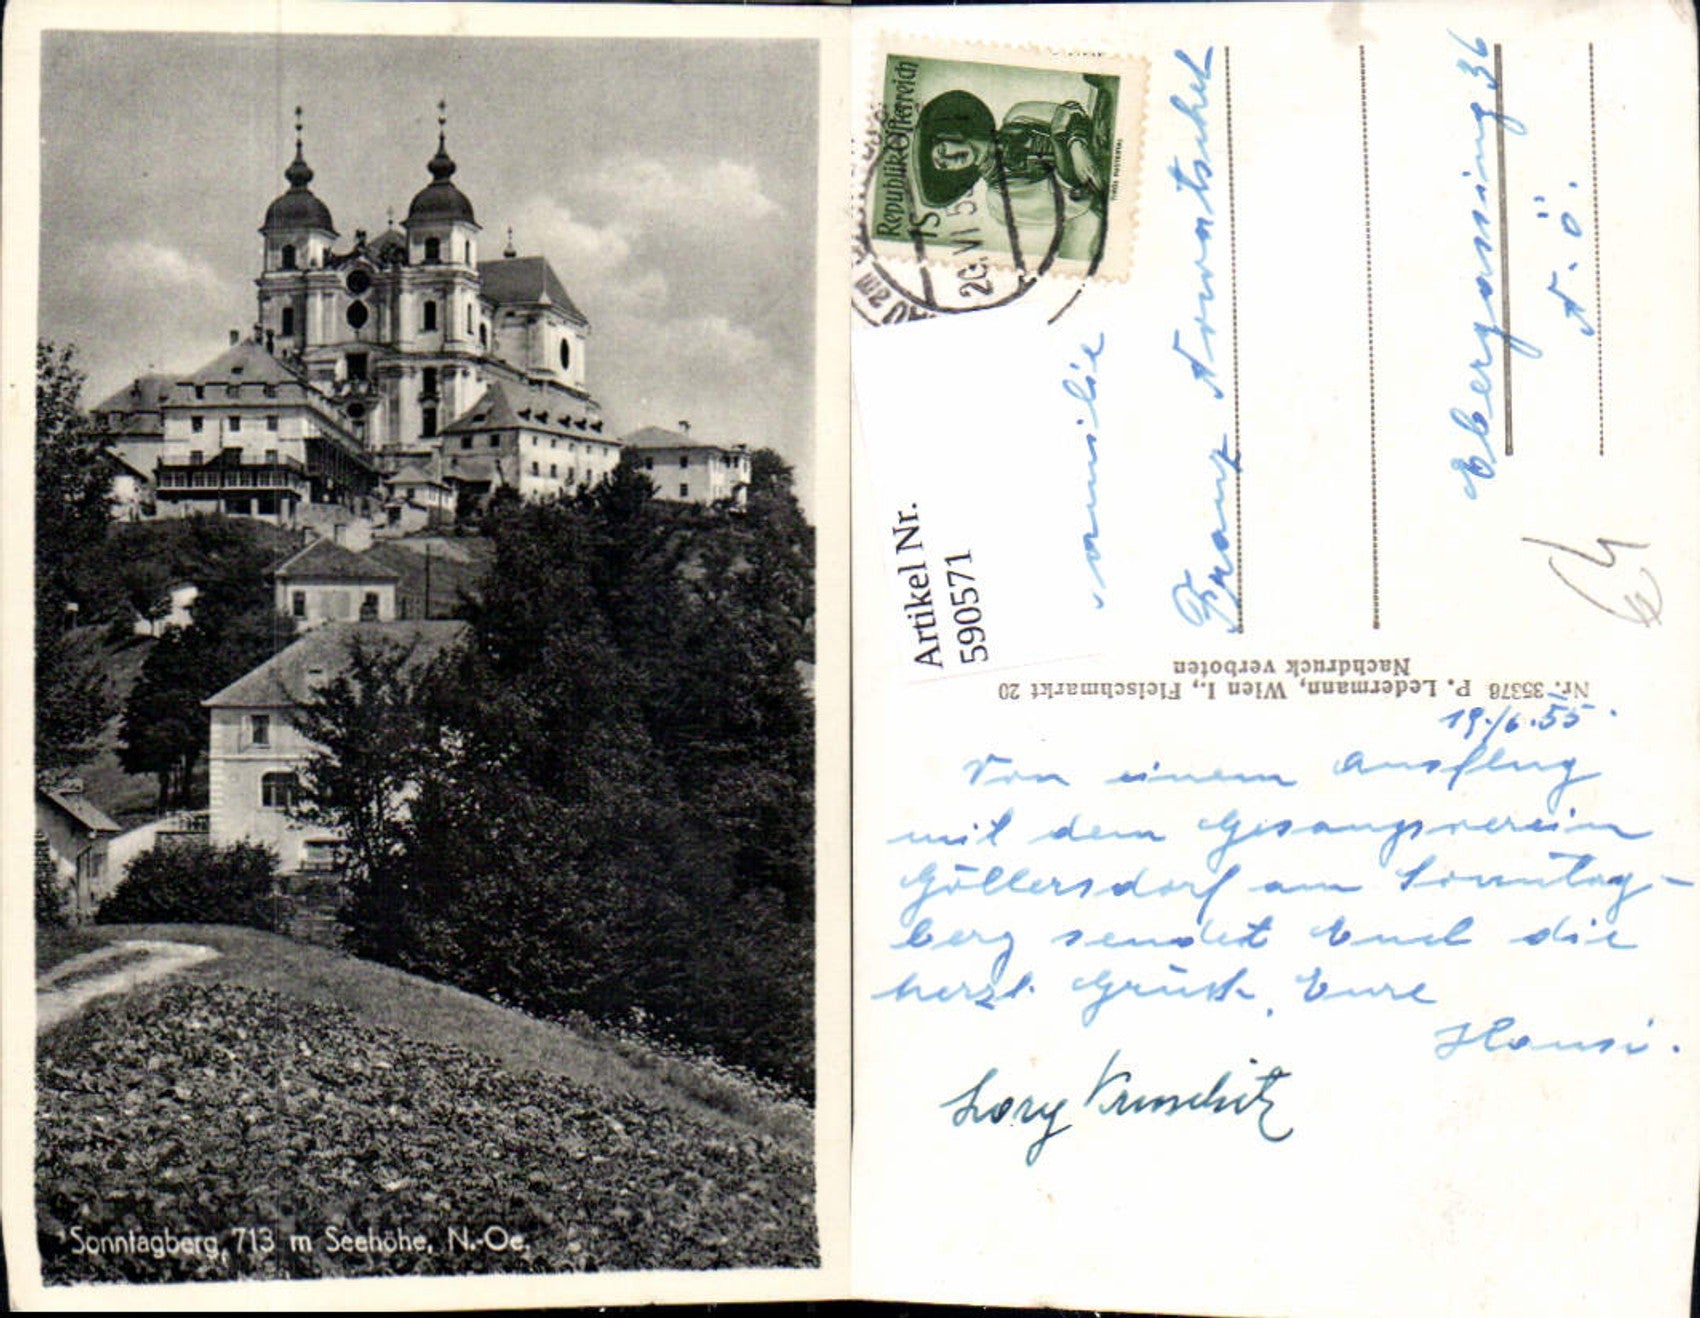 Sonntagberg, 713 m Seehöhe, N.-Oe.
Republik Österreich
20.VI.5
Artikel Nr.
590571
Familie
Franz
Ebergassing 36
N.Ö.
Nr. 35378 P. Ledermann, Wien I., Fleischmarkt 20
Nachdruck verboten
19./6.55.
Von einem Ausflug
mit dem Gesangsverein
Göllersdorf am Sonntag-
berg sendet Euch die
herzl. Grüsse, Eure
Hansi.
Lory